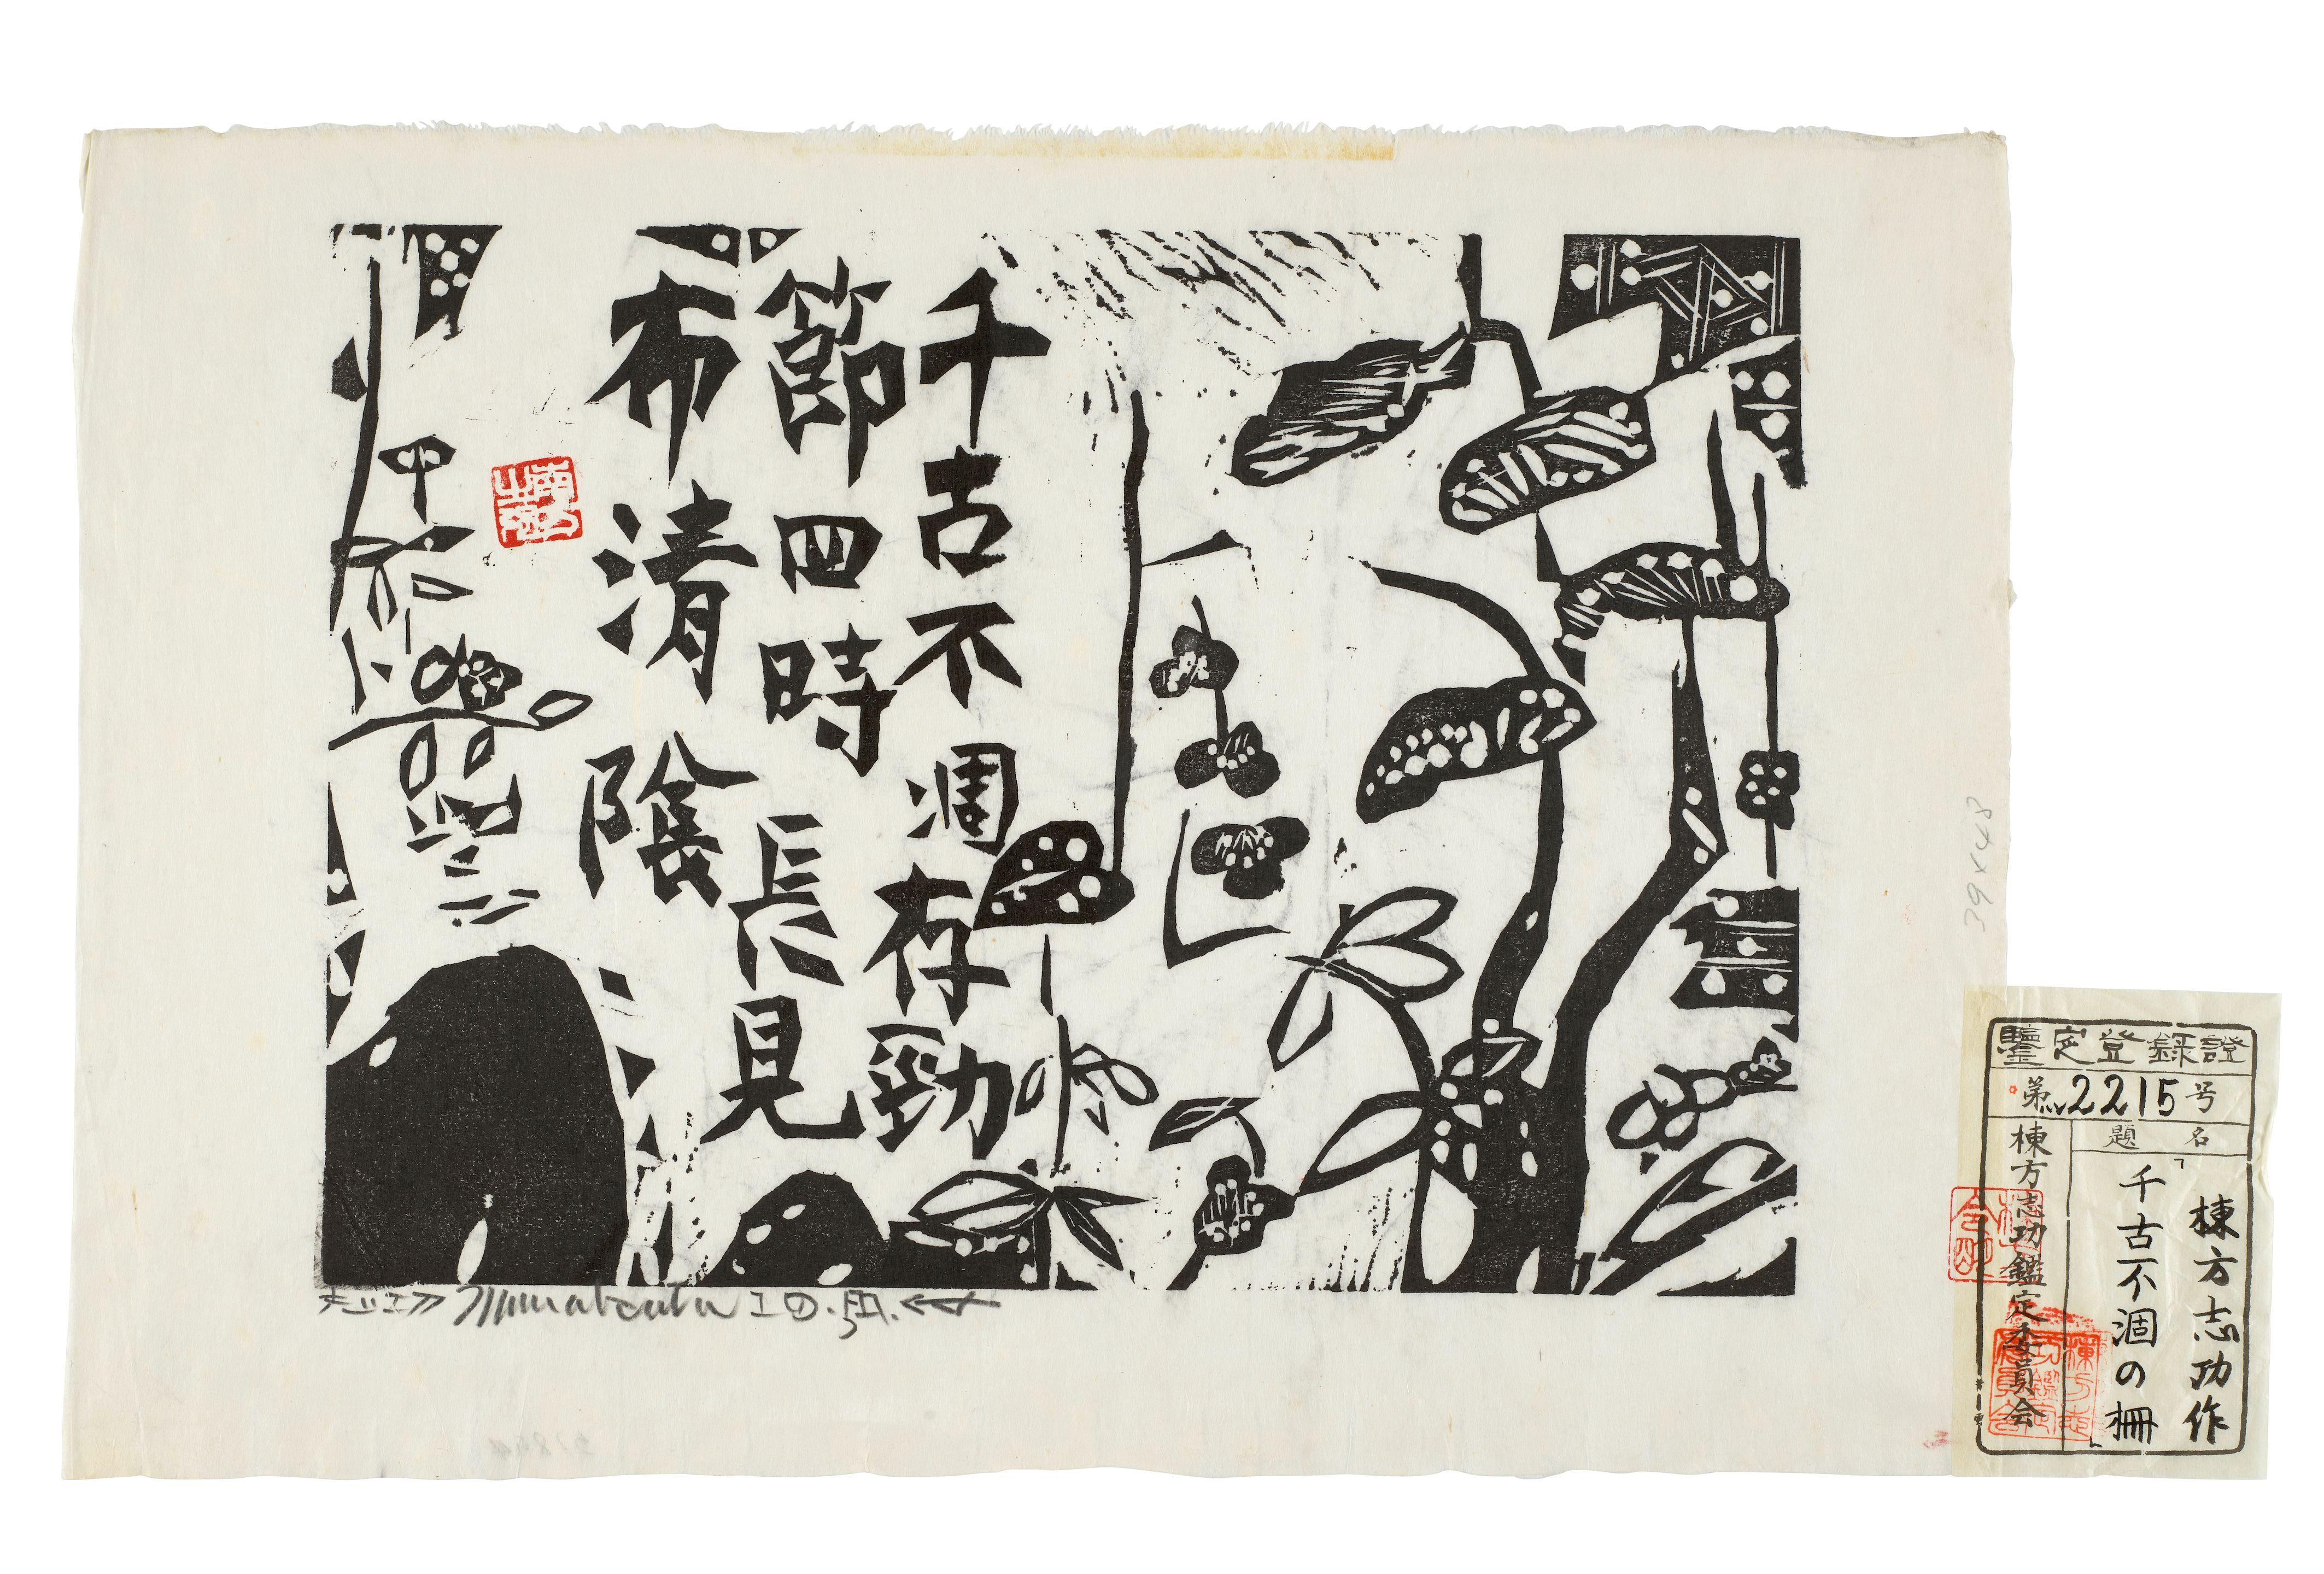 千古不凋存勁
節四時長見
布清陰
Munakata
39×48
鑒定登録證
第2215号
題名
棟方志功作
「千古不涸の柵」
棟方志功鑑定委員会